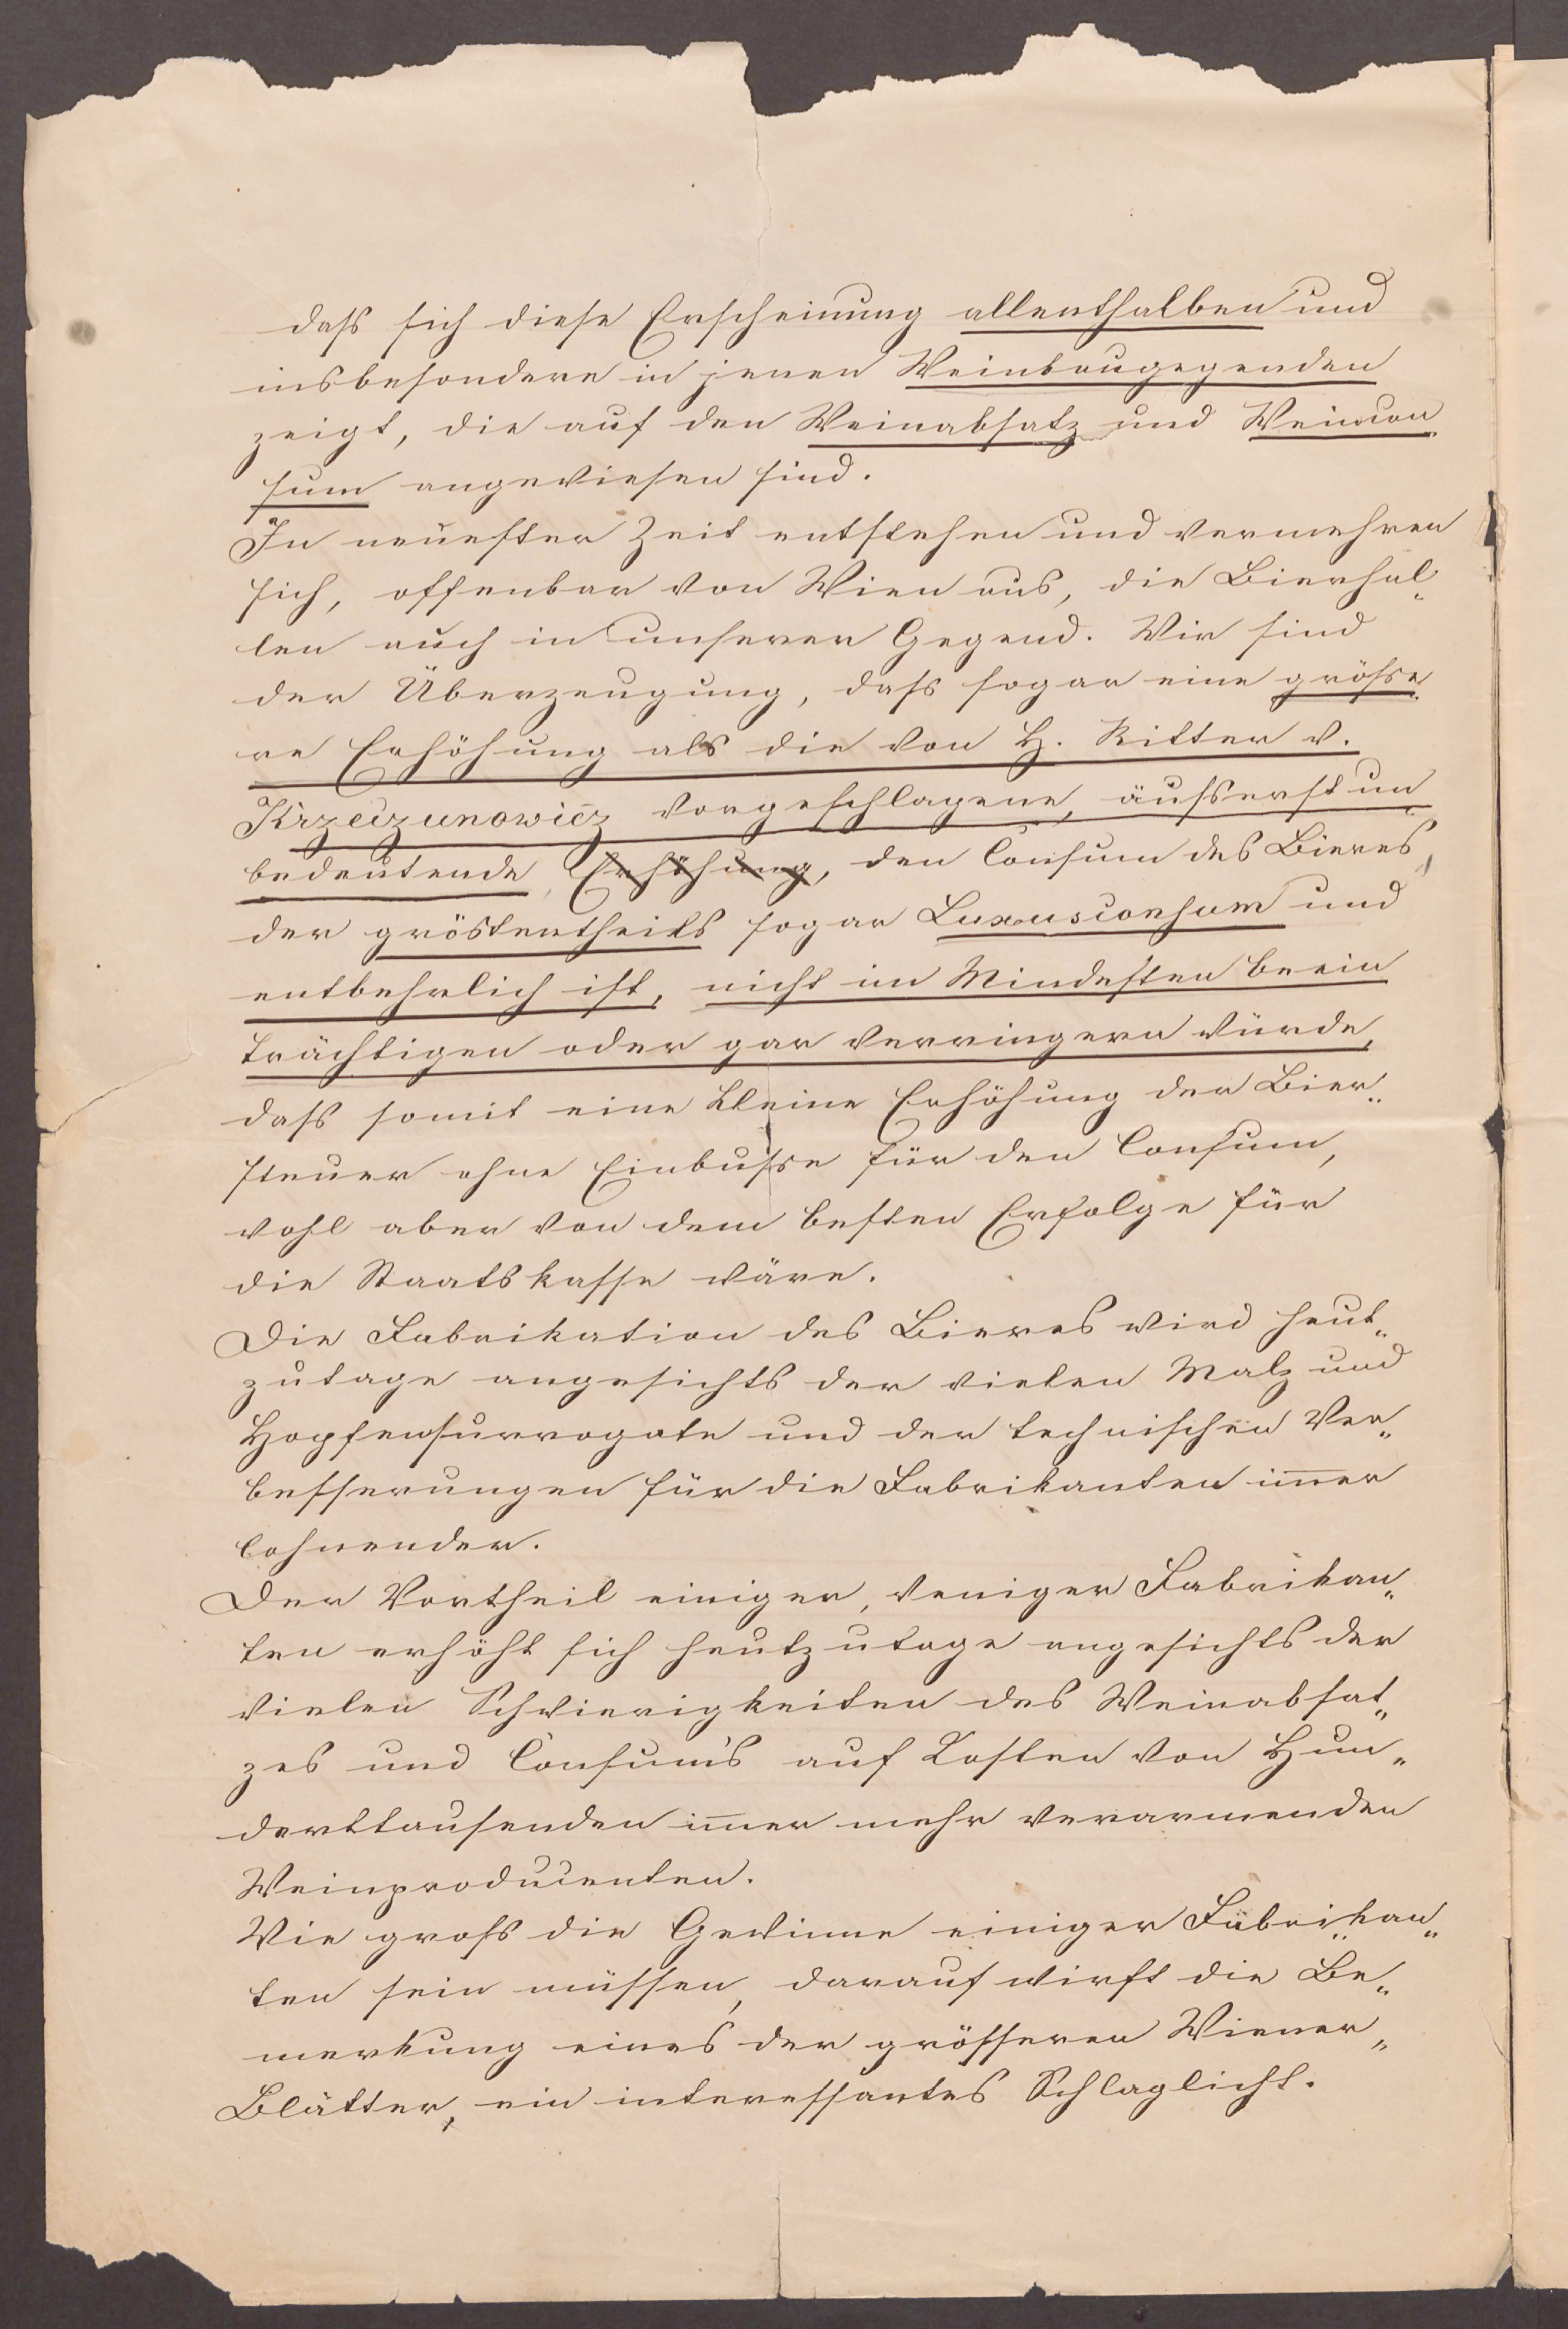 daß sich diese Erscheinung allenthalben und
insbesondere in jenen Weinbaugegenden
zeigt, die auf den Weinabsatz und Weincon
sum angewiesen sind.
In neuester Zeit entstehen und vermehren
sich, offenbar von Wien aus, die Bierhal„
len auch in unserer Gegend. Wir sind
der Überzeugung, daß sogar eine größe„
re Erhöhung als die von H. Ritter v.
Krzeczunowicz vorgeschlagene, äußerst un
bedeutende, Erhöhung, den Consum des Bieres,
der gröstentheils sogar Luxusconsum und
entbehrlich ist, nicht im Mindesten beein
trächtigen oder gar verringern würde,
daß somit eine kleine Erhöhung der Bier„
steuer ohne Einbuße für den Consum,
wohl aber von dem besten Erfolge für
die Staatskasse wäre.
Die Fabrikation des Bieres wird heut„
zutage angesichts der vielen Malz und
Hopfensurrogate und der technischen Ver„
besserungen für die Fabrikanten im̅er
lohnender.
Der Vortheil einiger, weniger Fabrikan„
ten erhöht sich heutzutage angesichts der
vielen Schwierigkeiten des Weinabsat„
zes und Consum's auf Kosten von Hun„
derttausenden im̅er mehr verarmenden
Weinproducenten.
Wie groß die Gewinne einiger Fabrikan„
ten sein müssen, darauf wirft die Be„
merkung eines der grösseren Wiener„
Blätter, ein interessantes Schlaglicht.